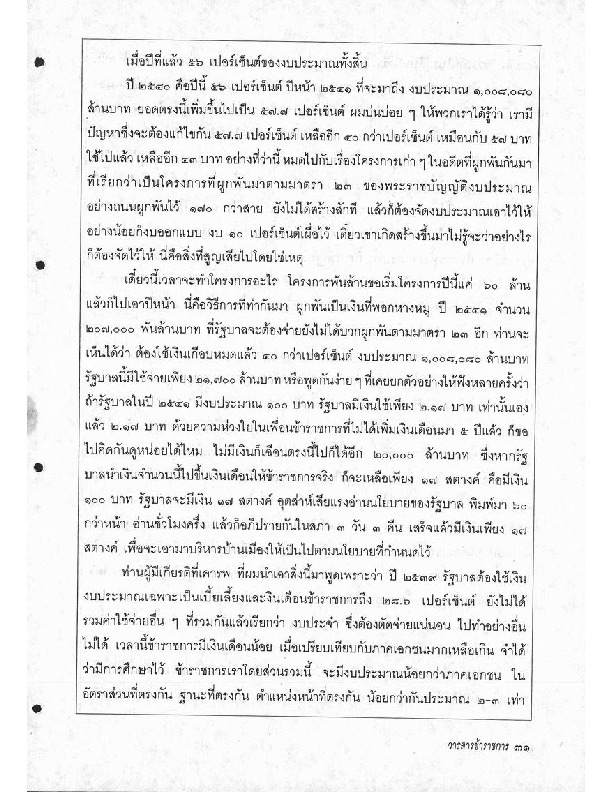 เมื่อปีที่แล้ว ๕๖ เปอร์เซ็นต์ของงบประมาณทั้งสิ้น
ปี ๒๕๔๐ คือปีนี้ ๕๖ เปอร์เซ็นต์ ปีหน้า ๒๕๔๑ ที่จะมาถึง งบประมาณ ๑,๐๐๘,๐๘๐
ล้านบาท ยอดตรงนี้เพิ่มขึ้นไปเป็น ๕๗.๗ เปอร์เซ็นต์ ผมบ่นบ่อย ๆ ให้พวกเราได้รู้ว่า เรามี
ปัญหาซึ่งจะต้องแก้ไขกัน ๕๗.๗ เปอร์เซ็นต์ เหลืออีก ๔๐ กว่าเปอร์เซ็นต์ เหมือนกับ ๕๗ บาท
ใช้ไปแล้ว เหลืออีก ๔๓ บาท อย่างที่ว่านี้ หมดไปกับเรื่องโครงการเก่า ๆ ในอดีตที่ผูกพันกันมา
ที่เรียกว่าเป็นโครงการที่ผูกพันมาตามมาตรา ๒๓ ของพระราชบัญญัติงบประมาณ
อย่างถนนผูกพันไว้ ๑๗๐ กว่าสาย ยังไม่ได้สร้างสักที แล้วก็ต้องจัดงบประมาณเอาไว้ให้
อย่างน้อยก็งบออกแบบ งบ ๑๐ เปอร์เซ็นต์เผื่อไว้ เดี๋ยวเขาเกิดสร้างขึ้นมาไม่รู้จะว่าอย่างไร
ก็ต้องจัดไว้ให้ นี่คือสิ่งที่สูญเสียไปโดยใช่เหตุ
เดี๋ยวนี้เวลาจะทำโครงการอะไร โครงการพันล้านขอเริ่มโครงการปีนี้แค่ ๖๐ ล้าน
แล้วก็ไปเอาปีหน้า นี่คือวิธีการที่ทำกันมา ผูกพันเป็นเงินที่พอกหางหมู ปี ๒๕๔๑ จำนวน
๒๐๗,๐๐๐ พันล้านบาท ที่รัฐบาลจะต้องจ่ายยังไม่ได้บวกผูกพันตามมาตรา ๒๓ อีก ท่านจะ
เห็นได้ว่า ต้องใช้เงินเกือบหมดแล้ว ๔๐ กว่าเปอร์เซ็นต์ งบประมาณ ๑,๐๐๘,๐๘๐ ล้านบาท
รัฐบาลนี้มีใช้จ่ายเพียง ๒๑,๗๐๐ ล้านบาท หรือพูดกันง่าย ๆ ที่เคยยกตัวอย่างให้ฟังหลายครั้งว่า
ถ้ารัฐบาลในปี ๒๕๔๑ มีงบประมาณ ๑๐๐ บาท รัฐบาลมีเงินใช้เพียง ๒.๑๗ บาท เท่านั้นเอง
แล้ว ๒.๑๗ บาท ด้วยความห่วงใยในเพื่อนข้าราชการที่ไม่ได้เพิ่มเงินเดือนมา ๕ ปีแล้ว ก็ขอ
ไปคิดกันดูหน่อยได้ไหม ไม่มีเงินก็เฉือนตรงนี้ไปก็ได้อีก ๒๐,๐๐๐ ล้านบาท ซึ่งหากรัฐ
บาลนำเงินจำนวนนี้ไปขึ้นเงินเดือนให้ข้าราชการจริง ก็จะเหลือเพียง ๑๗ สตางค์ คือมีเงิน
๑๐๐ บาท รัฐบาลจะมีเงิน ๑๗ สตางค์ อุตส่าห์เสียแรงอ่านนโยบายของรัฐบาล พิมพ์มา ๖๐
กว่าหน้า อ่านชั่วโมงครึ่ง แล้วก็อภิปรายกันในสภา ๓ วัน ๓ คืน เสร็จแล้วมีเงินเพียง ๑๗
สตางค์ เพื่อจะเอามาบริหารบ้านเมืองให้เป็นไปตามนโยบายที่กำหนดไว้
ท่านผู้มีเกียรติที่เคารพ ที่ผมนำเอาสิ่งนี้มาพูดเพราะว่า ปี ๒๕๓๙ รัฐบาลต้องใช้เงิน
งบประมาณเฉพาะเป็นเบี้ยเลี้ยงและเงินเดือนข้าราชการถึง ๒๘.๖ เปอร์เซ็นต์ ยังไม่ได้
รวมค่าใช้จ่ายอื่น ๆ ที่รวมกันแล้วเรียกว่า งบประจำ ซึ่งต้องตัดจ่ายแน่นอน ไปทำอย่างอื่น
ไม่ได้ เวลานี้ข้าราชการมีเงินเดือนน้อย เมื่อเปรียบเทียบกับภาคเอกชนมากเหลือเกิน จำได้
ว่ามีการศึกษาไว้ ข้าราชการเราโดยส่วนรวมนี้ จะมีงบประมาณน้อยกว่าภาคเอกชน ใน
อัตราส่วนที่ตรงกัน ฐานะที่ตรงกัน ตำแหน่งหน้าที่ตรงกัน น้อยกว่ากันประมาณ ๒-๓ เท่า
วารสารข้าราชการ ๓๑